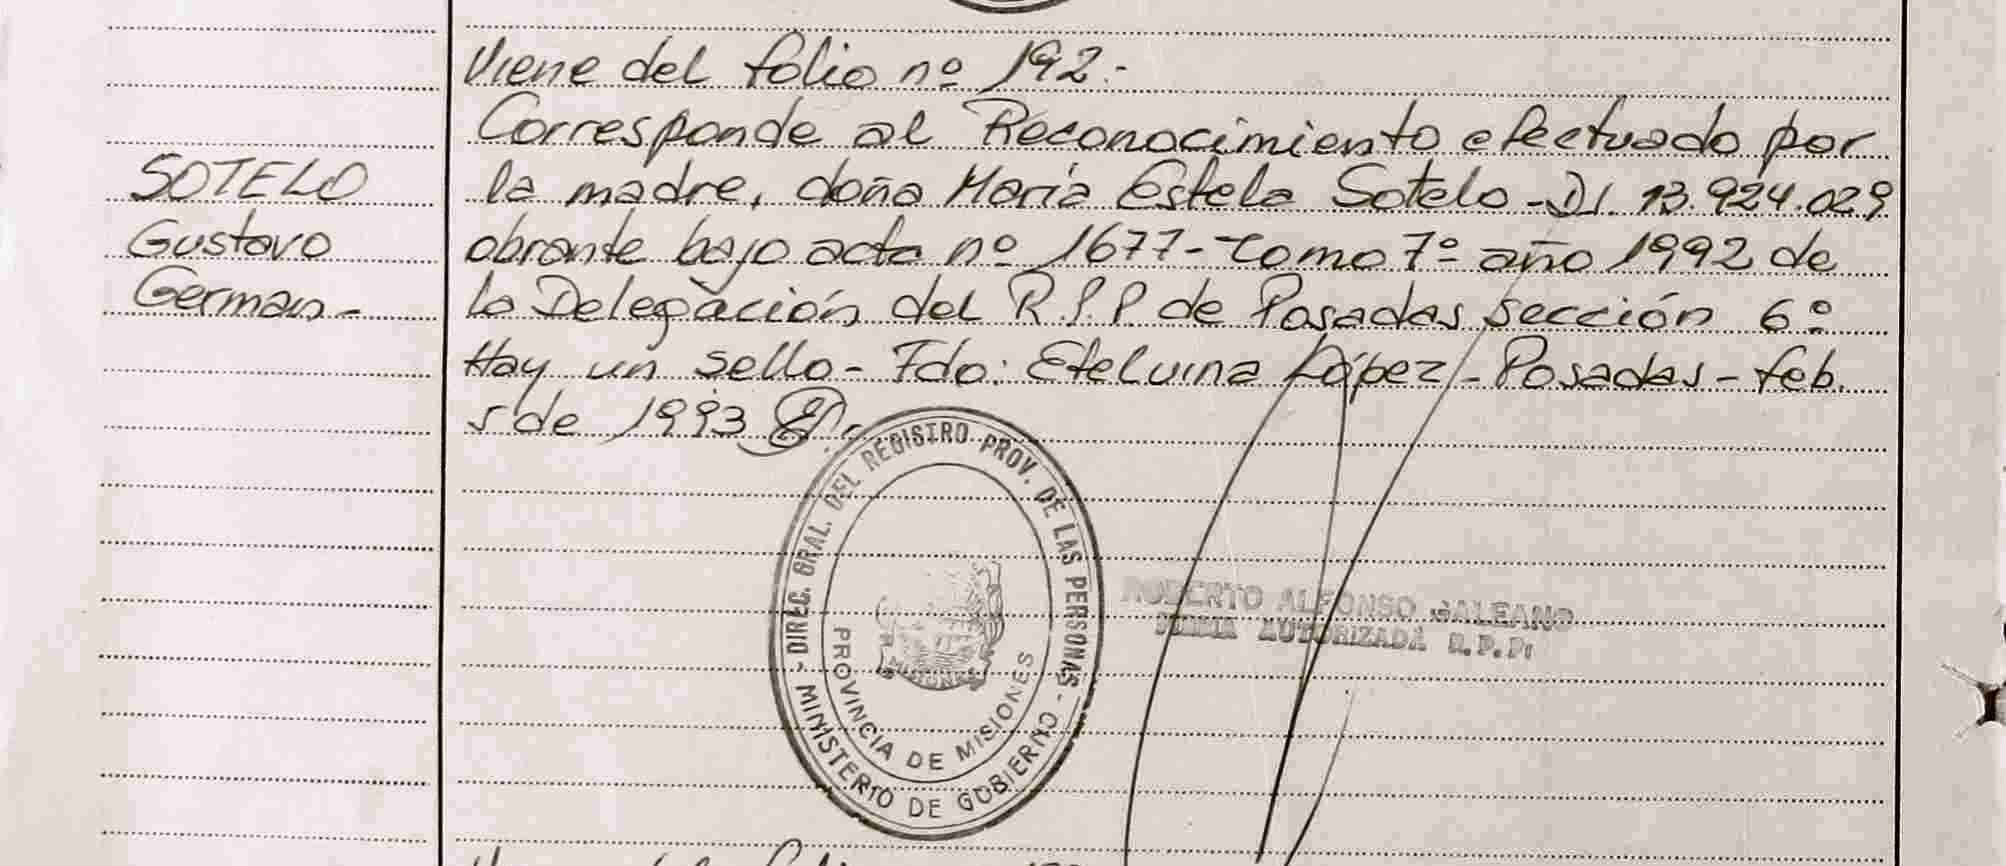 Viene del folio nº 192.-
Corresponde al Reconocimiento efectuado por
SOTELO
la madre, doña María Estela Sotelo - DI. 13.924.029
Gustavo
obrante bajo acta nº 1677 - Tomo 7º año 1992 de
German -
la Delegación del R.P.P. de Posadas sección 6º
Hay un sello - Fdo: Etelvina López - Posadas - feb.
5 de 1993
DIREC. GRAL. DEL REGISTRO PROV. DE LAS PERSONAS - MINISTERIO DE GOBIERNO -
PROVINCIA DE MISIONES
MISIONES
ROBERTO ALFONSO GALEANO
FIRMA AUTORIZADA R.P.P.